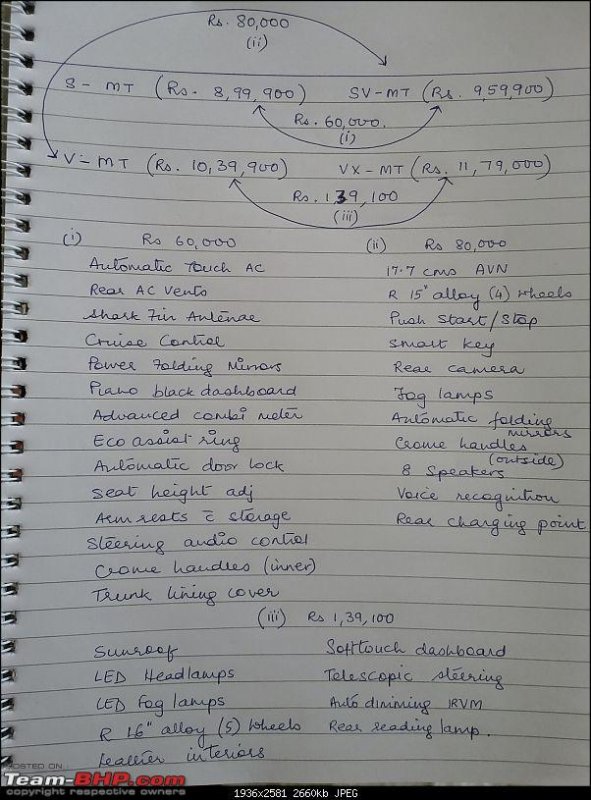 Rs. 80,000
(ii)
S - MT (Rs. 8,99,900) SV-MT (Rs. 9,59,900)
Rs. 60,000.
(i)
V - MT (Rs. 10,39,900) VX - MT (Rs. 11,79,000)
Rs. 139,100
(iii)
(i) Rs 60,000
Automatic Touch AC
Rear AC Vents
Shark Fin Antenae
Cruise Control
Power Folding Mirrors
Piano black dashboard
Advanced combi meter
Eco assist ring
Automatic door lock
Seat height adj
Arm rests c̄ storage
Steering audio control
Crome handles (inner)
Trunk lining cover
(ii) Rs 80,000
17.7 cms AVN
R 15" alloy (4) wheels
Push Start/Stop
Smart key
Rear camera
Fog lamps
Automatic folding
mirrors
Crome handles
(outside)
8 Speakers
Voice recognition
Rear charging point
(iii) Rs 1,39,100
Sunroof
LED Headlamps
LED Fog lamps
R 16" alloy (5) wheels
Leather interiors
Soft touch dashboard
Telescopic steering
Auto dimming IRVM
Rear reading lamp.
HOSTED ON :
Team-BHP.com
copyright respective owners
1936x2581 2660kb JPEG